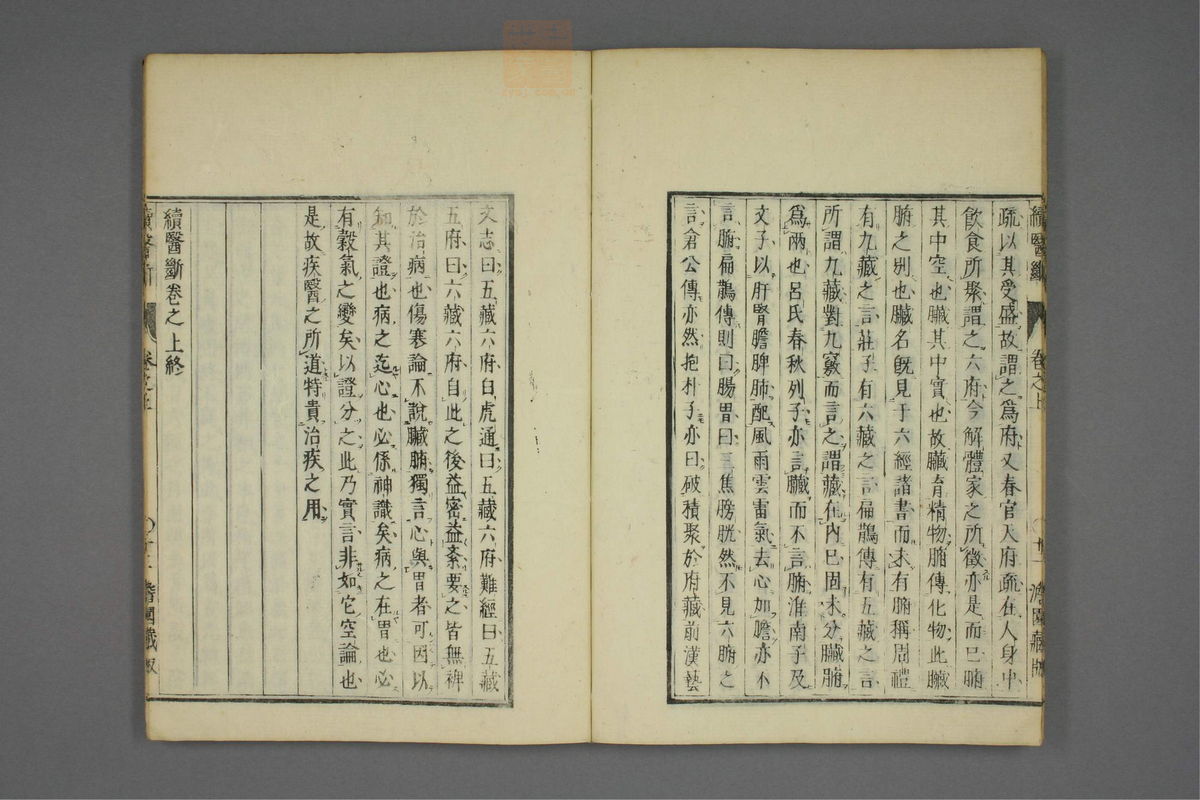 疏以其受盛故謂之爲府又春官天府疏在人身中
飮食所聚謂之六府今解體家之所徵亦是而已腑
其中空也臟其中實也故臟育精物腑傳化物此臟
腑之別也臟名旣見于六經諸書而未有腑稱周禮
有九藏之言莊子有六藏之言扁鵲傳有五藏之言
所謂九藏對九竅而言之謂藏在內已固未分臟腑
爲兩也呂氏春秋列子亦言臟而不言腑淮南子及
文子以肝腎膽脾肺配風雨雲雷氣去心加膽亦不
言腑扁鵲傳則曰腸胃曰三焦膀胱然不見六腑之
言倉公傳亦然抱朴子亦曰破積聚於府藏前漢藝
續醫斷
卷之上
澹園藏版
文志曰五藏六府白虎通曰五藏六府難經曰五藏
五府曰六藏六府自此之後益密益紊要之皆無裨
於治病也傷寒論不說臟腑獨言心與胃者可因以
知其證也病之迄心也必係神識矣病之在胃也必
有穀氣之變矣以證分之此乃實言非如它空論也
是故疾醫之所道特貴治疾之用
續醫斷卷之上終
續醫斷
卷之上
澹園藏版